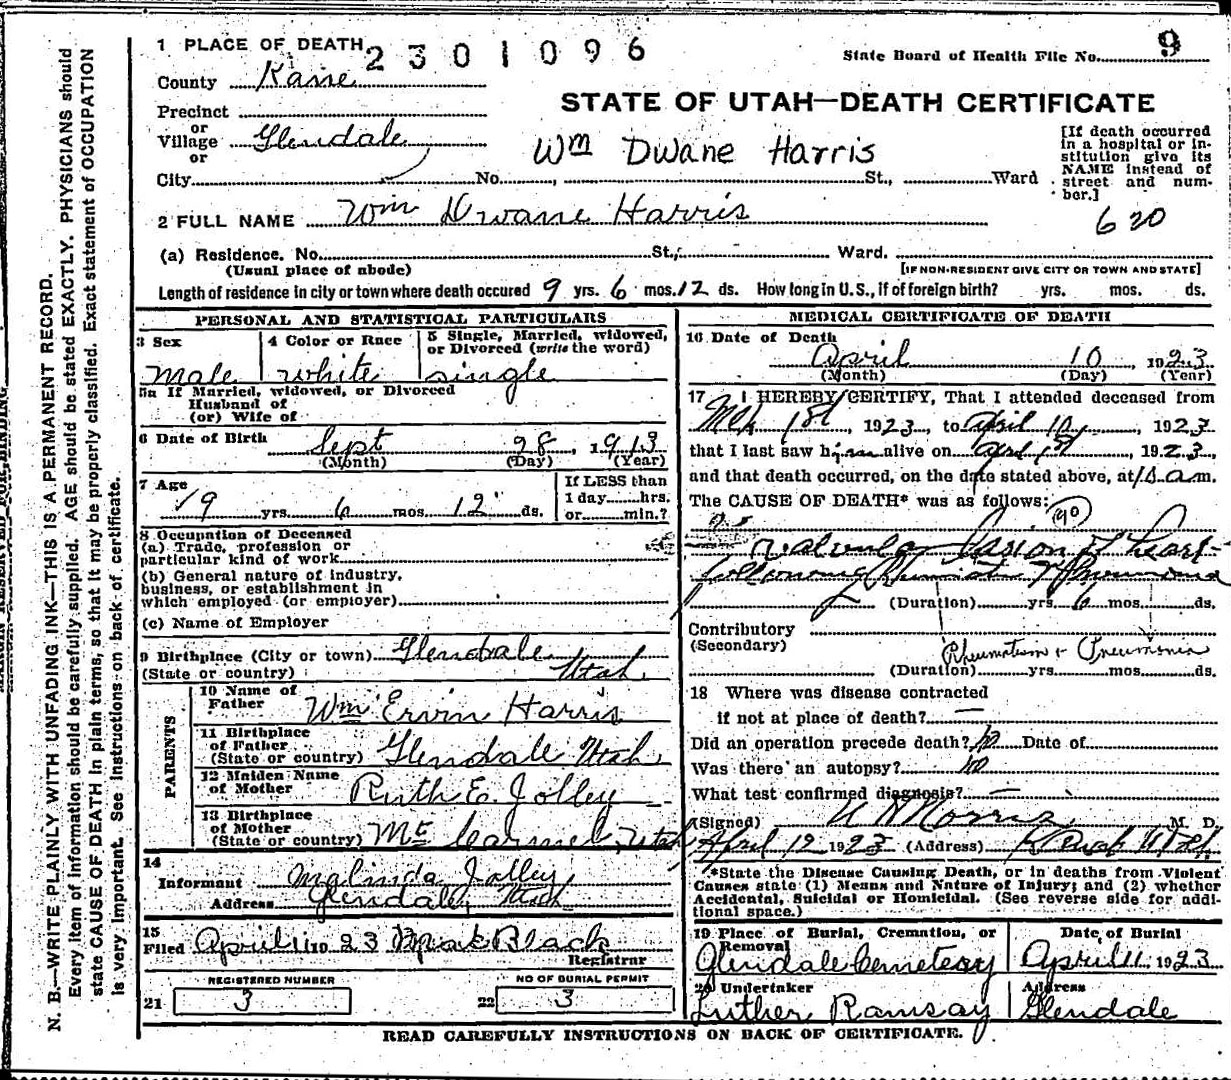 N. B.—WRITE PLAINLY WITH UNFADING INK—THIS IS A PERMANENT RECORD.
Every item of information should be carefully supplied. AGE should be stated EXACTLY. PHYSICIANS should
state CAUSE OF DEATH in plain terms, so that it may be properly classified. Exact statement of OCCUPATION
is very important. See instructions on back of certificate.
1 PLACE OF DEATH 2301096 State Board of Health File No. 9
County Kane
STATE OF UTAH—DEATH CERTIFICATE
Precinct
or
Village Glendale
or
Wm Dwane Harris
City No. , St., Ward
[If death occurred
in a hospital or in-
stitution give its
NAME instead of
street and num-
ber.]
620
2 FULL NAME Wm Dwane Harris
(a) Residence. No. St., Ward.
(Usual place of abode) [IF NON-RESIDENT GIVE CITY OR TOWN AND STATE]
Length of residence in city or town where death occured 9 yrs. 6 mos. 12 ds. How long in U. S., if of foreign birth? yrs. mos. ds.
PERSONAL AND STATISTICAL PARTICULARS
3 Sex 4 Color or Race 5 Single, Married, widowed,
or Divorced (write the word)
Male white single
5a If Married, widowed, or Divorced
Husband of
(or) Wife of
6 Date of Birth Sept 28, 1913
(Month) (Day) (Year)
7 Age 9 yrs. 6 mos. 12 ds.
If LESS than
1 day hrs.
or min.?
8 Occupation of Deceased
(a) Trade, profession or
particular kind of work
(b) General nature of industry,
business, or establishment in
which employed (or employer)
(c) Name of Employer
9 Birthplace (City or town) Glendale
(State or country) Utah
PARENTS
10 Name of
Father Wm Ervin Harris
11 Birthplace
of Father
(State or country) Glendale Utah
12 Maiden Name
of Mother Ruth E. Jolley
13 Birthplace
of Mother
(State or country) Mt Carmel, Utah
14
Informant Malinda Jolley
Address Glendale, Utah
15
Filed April 11 1923 Black
Registrar
REGISTERED NUMBER NO OF BURIAL PERMIT
21 3 22 3
MEDICAL CERTIFICATE OF DEATH
16 Date of Death
April 10, 1923
(Month) (Day) (Year)
17 I HEREBY CERTIFY, That I attended deceased from
Mch 1st, 1923, to April 10, 1923
that I last saw him alive on Apr 1st, 1923,
and that death occurred, on the date stated above, at 10 a.m.
The CAUSE OF DEATH* was as follows:
90
valvular lesion of heart
following Rheumatism & Pneumonia
(Duration) yrs. 6 mos. ds.
Contributory
(Secondary) Rheumatism + Pneumonia
(Duration) yrs. mos. ds.
18 Where was disease contracted
if not at place of death? —
Did an operation precede death? no Date of
Was there an autopsy? no
What test confirmed diagnosis? —
(Signed) Norris M. D.
April 12 1923 (Address) Kanab Utah
*State the Disease Causing Death, or in deaths from Violent
Causes state (1) Means and Nature of Injury; and (2) whether
Accidental, Suicidal or Homicidal. (See reverse side for addi-
tional space.)
19 Place of Burial, Cremation, or
Removal
Date of Burial
Glendale Cemetery April 11, 1923
20 Undertaker Address
Luther Ramsay Glendale
READ CAREFULLY INSTRUCTIONS ON BACK OF CERTIFICATE.